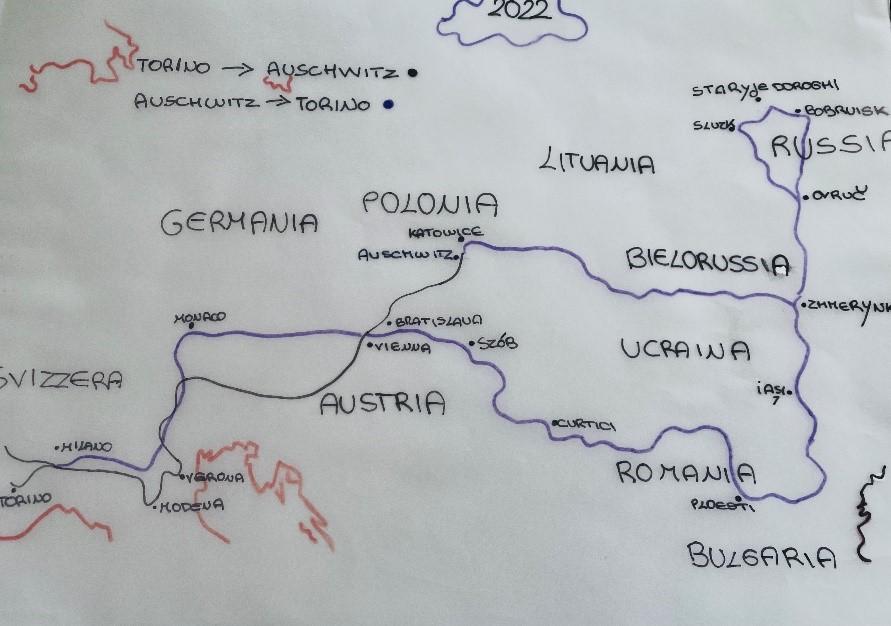 2022
TORINO → AUSCHWITZ
AUSCHWITZ → TORINO
STARYJE DOROGHI
BOBRUISK
SLUZK
RUSSIA
LITUANIA
OVRUČ
POLONIA
GERMANIA
KATOWICE
AUSCHWITZ
BIELORUSSIA
ZHMERYNK
MONACO
BRATISLAVA
VIENNA
SZÓB
UCRAINA
SVIZZERA
IASI
AUSTRIA
CURTICI
MILANO
VERONA
ROMANIA
TORINO
MODENA
PLOESTI
BULGARIA